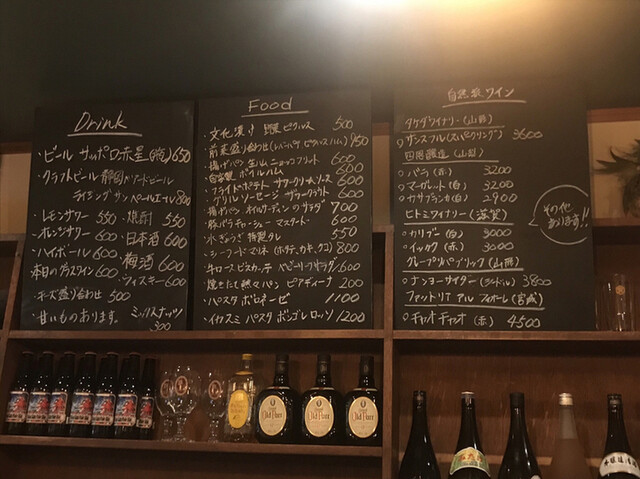 Drink
・ビール サッポロ赤星(中瓶) 650
・クラフトビール 静岡
ライジングサンペールエール 800
・レモンサワー 550 ・焼酎 550
・オレンジサワー 600 ・日本酒 600
・ハイボール 600 ・梅酒 600
・本日のグラスワイン 600 ・ウィスキー 600
・チーズ盛り合わせ 500
・甘いものあります。 ミックスナッツ
300
Food
・文化漬け ピクルス 500
・前菜盛り合わせ 950
・揚げパン 生ハム ニョッコフリット 600
・自家製 ボイルハム 600
・フライドポテト サワークリームソース 600
・グリルソーセージ ザワークラウト 600
・揚げパン ゴルゴンゾーラ サラダ 700
・豚バラチャーシュー マスタード 600
・水ぎょうざ 特製タレ 550
・シーフードマリネ (ホタテ、カキ、タコ) 800
・牛ロースビステッカ ベビーリーフサラダ
・焼きたて熱々パン ピアディーナ 200
・パスタ ボロネーゼ 1100
・イカスミ パスタ ボンゴレロッソ 1200
自然派ワイン
タケダワイナリー (山形)
・サンスフル (スパークリング) 3600
四恩醸造 (山梨)
・バラ (赤) 3200
・マーガレット (白) 3200
・カサブランカ (白) 2900
ヒトミワイナリー (滋賀)
・カリブー (白) 3000
・イックク (赤) 3000
グレープリパブリック (山形)
・ナンヨーサイダー (シードル) 3800
ファットリア アル フィオーレ (宮城)
・チャオチャオ (赤) 4500
その他
あります!!
Old Parr
Old Parr
Old Parr